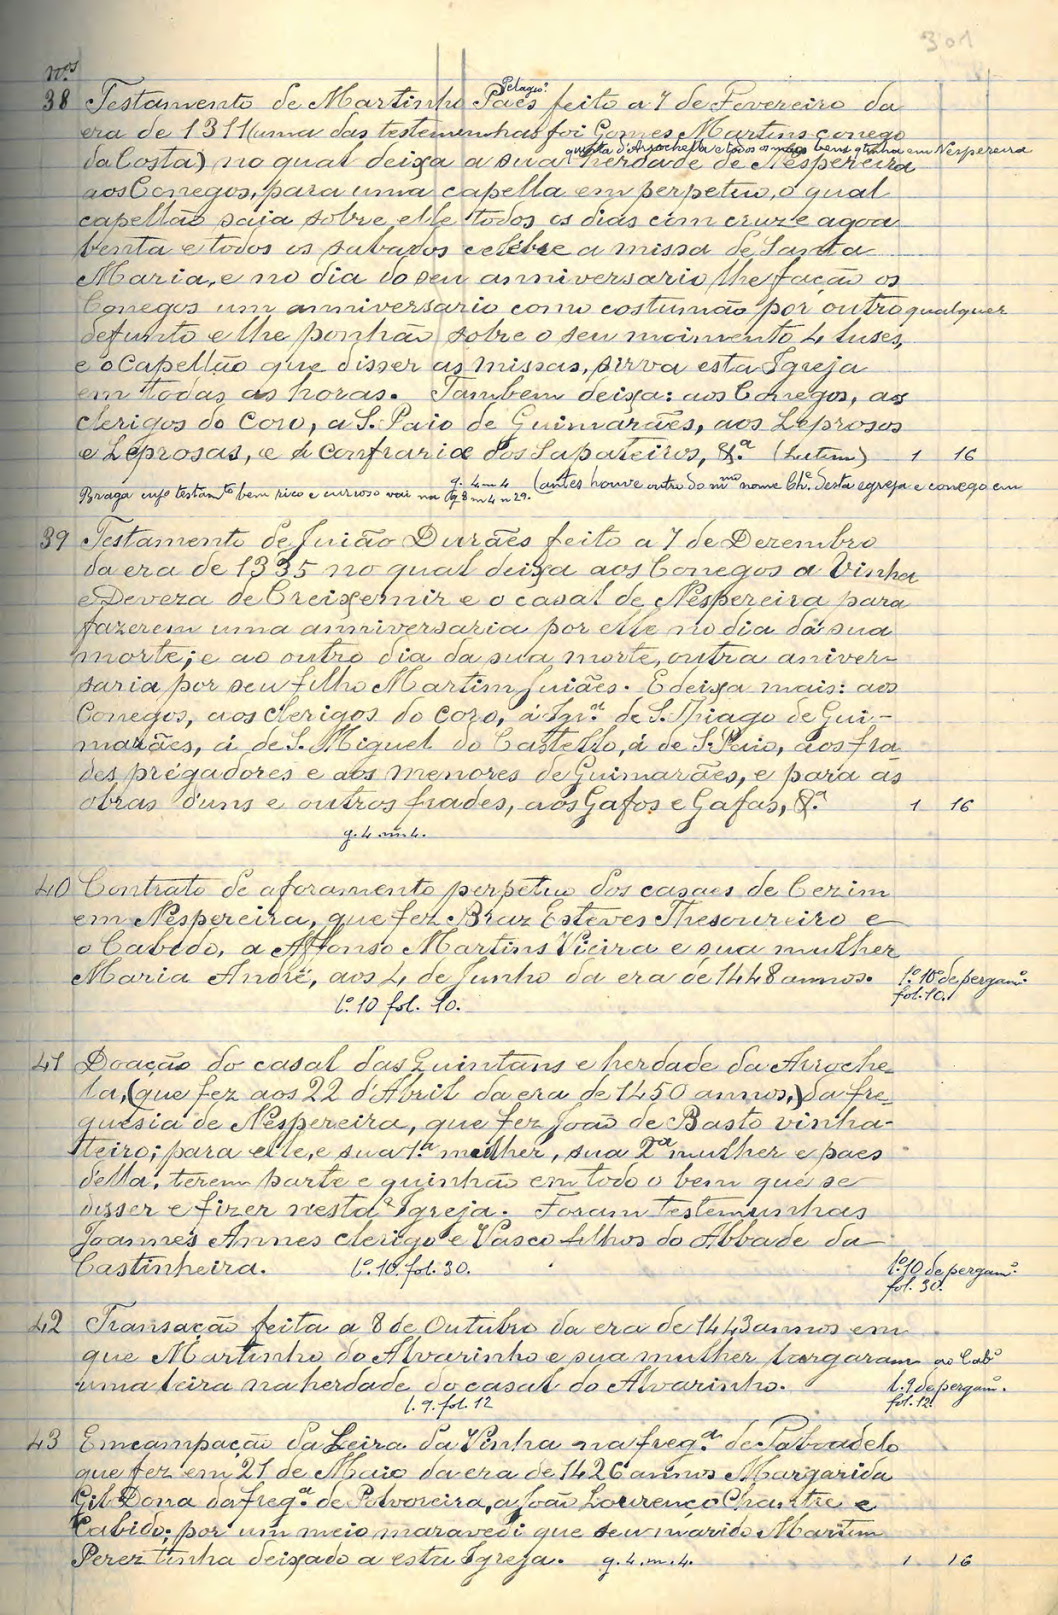 301
nos
38 Testamento de Martinho Paes feito a 7 de Fevereiro da
Pelagio
era de 1311 (uma das testemunhas foi Gomes Martins conego
da Costa) no qual deixa a sua (herdade de Nespereira
quinta d'Arrochella e todos os mais bens q tinha em Nespereira
aos Conegos, para uma capella em perpetuo, o qual
capellão saia sobre elle todos os dias com cruz e agoa
benta e todos os sabados celebre a missa de Santa
Maria, e no dia do seu anniversario lhe fação os
Conegos um anniversario como costumão por outro qualquer
defunto e lhe ponhão sobre o seu moimento 4 luses,
e o Capellão que disser as missas, sirva esta Igreja
em todas as horas. Tambem deixa: aos Conegos, aos
clerigos do Coro, a S. Paio de Guimarães, aos Leprosos
e Leprosas, e á confraria dos Sapateiros, &.ª (Latim) 1 16
g. 4 m 4 (antes houve outro do mmo nome Che. desta egreja e conego em
Braga cujo testamto bem rico e curioso vai na g 8 m 4 n 29.
39 Testamento de Juião Durães feito a 7 de Dezembro
da era de 1335 no qual deixa aos Conegos a Vinha
e Deveza de Creixemir e o casal de Nespereira para
fazerem uma anniversaria por elle no dia da sua
morte; e ao outro dia da sua morte, outra aniver-
saria por seu filho Martim Juiães. E deixa mais: aos
Conegos, aos clerigos do coro, á Igrª. de S. Thiago de Gui-
marães, á de S. Miguel do Castello, á de S. Paio, aos fra-
des prégadores e aos menores de Guimarães, e para as
obras d'uns e outros frades, aos Gafos e Gafas, &.ª 1 16
g. 4. m. 4.
40 Contrato de aforamento perpetuo dos casaes de Cezim
em Nespereira, que fez Braz Esteves Thesoureiro e
o Cabido, a Affonso Martins Vieira e sua mulher
Maria André, aos 4 de Junho da era de 1448 annos. l.º 10 de pergamº.
fol. 10.
l.º 10 fol. 10.
41 Doação do casal das Quintans e herdade da Arroche-
la, (que fez aos 22 d'Abril da era de 1450 annos,) da fre-
guesia de Nespereira, que fez João de Basto vinha-
teiro; para elle, e sua 1.ª mulher, sua 2ª mulher e paes
della, terem parte e quinhão em todo o bem que se
disser e fizer nesta Igreja. Foram testemunhas
Joannes Annes clerigo e Vasco filhos do Abbade da
Castinheira. l.º 10. fol. 30. l.º 10 de pergamº.
fol. 30.
42 Transação feita a 8 de Outubro da era de 1443 annos em
que Martinho do Alvarinho e sua mulher largaram ao Cabº
uma leira na herdade do casal do Alvarinho. l. 9 de pergamº.
fol. 12.
l. 9. fol. 12
43 Emcampação da Leira da Vinha na freg.ª de Sabradelo
que fez em 21 de Maio da era de 1426 annos Margarida
Gil Dona da freg.ª de Polvoreira, a João Lourenço Chantre e
Cabido; por um meio maravedi que seu marido Martim
Perez tinha deixado a esta Igreja. g. 4. m. 4. 1 16